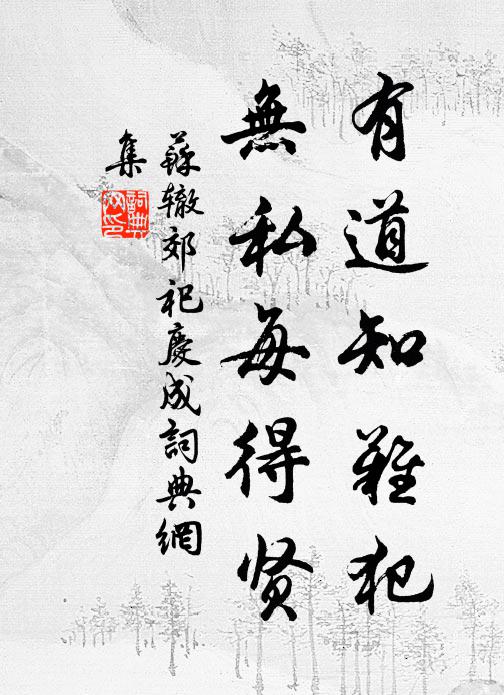 有道知難犯
無私每得贤
蘇辙郊祀慶成詞典網
集
詞典网印